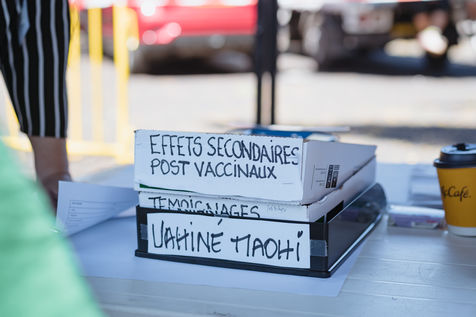 EFFETS SECONDAIRES
POST VACCINAUX
TEMOIGNAGES
VAHINÉ MAOHI
McCafé